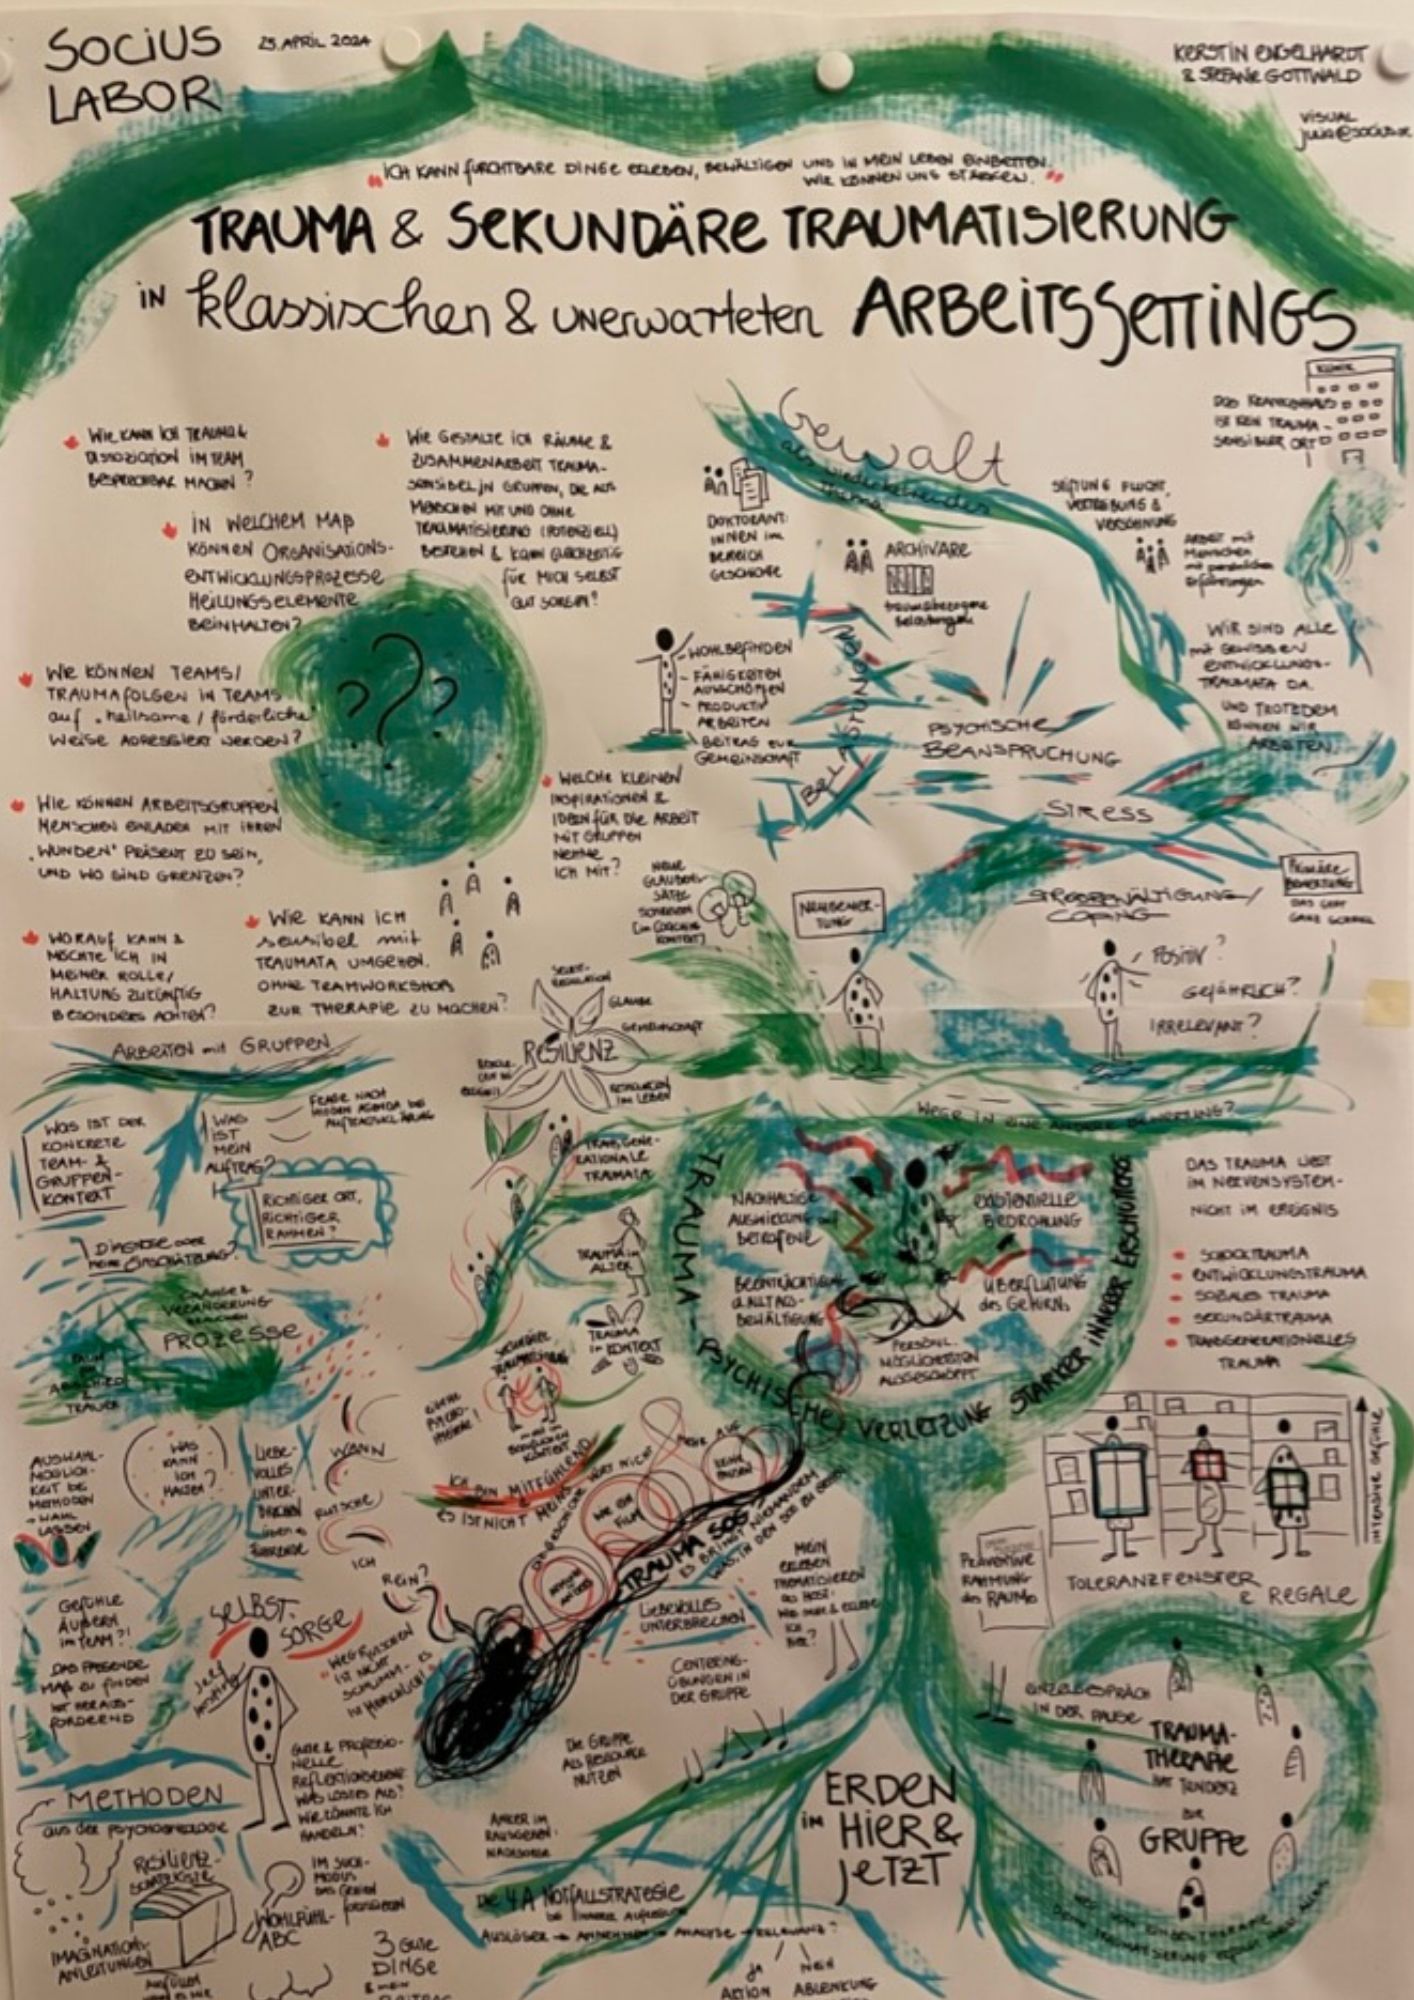 SOCiUS
LABOR
25. APRIL 2024
KERSTIN ENGELHARDT
& STEFANIE GOTTWALD
VISUAL
"ICH KANN FURCHTBARE DINGE ERLEBEN, BEWÄLTIGEN UND IN MEIN LEBEN EINBETTEN.
WIR KÖNNEN UNS STÄRKEN."
TRAUMA & SEKUNDÄRE TRAUMATISIERUNG
IN klassischen & unerwarteten ARBEITSSETTINGS
WIE KANN ICH TRAUMA &
DISSOZIATION IM TEAM
BESPRECHBAR MACHEN?
WIE GESTALTE ICH RÄUME &
ZUSAMMENARBEIT TRAUMA-
SENSIBEL IN GRUPPEN, DIE AUS
MENSCHEN MIT UND OHNE
TRAUMATISIERUNG (POTENZIELL)
BESTEHEN & KANN GLEICHZEITIG
FÜR MICH SELBST
GUT SORGEN?
IN WELCHEM MAß
KÖNNEN ORGANISATIONS-
ENTWICKLUNGSPROZESSE
HEILUNGSELEMENTE
BEINHALTEN?
WIE KÖNNEN TEAMS/
TRAUMAFOLGEN IN TEAMS
auf "heilsame / förderliche"
WEISE ADRESSIERT WERDEN?
WIE KÖNNEN ARBEITSGRUPPEN
MENSCHEN EINLADEN MIT IHREN
"WUNDEN" PRÄSENT ZU SEIN,
UND WO SIND GRENZEN?
WORAUF KANN &
MÖCHTE ICH IN
MEINER ROLLE/
HALTUNG ZUKÜNFTIG
BESONDERS ACHTEN?
WIE KANN ICH
sensibel mit
TRAUMATA UMGEHEN,
OHNE TEAMWORKSHOPS
ZUR THERAPIE ZU MACHEN?
WELCHE KLEINEN
INSPIRATIONEN &
IDEEN FÜR DIE ARBEIT
MIT GRUPPEN
NEHME
ICH MIT?
???
Gewalt
als wiederkehrendes
Thema
DOKTORANT:
INNEN im
BEREICH
GESCHICHTE
ARCHIVARE
traumabezogene
Belastungen
STIFTUNG FLUCHT,
VERTREIBUNG &
VERSÖHNUNG
ARBEIT mit
Menschen
mit persönlichen
Erfahrungen
KLINIK
DAS KRANKENHAUS
IST KEIN TRAUMA-
SENSIBLER ORT
WIR SIND ALLE
mit GEWISSEN
ENTWICKLUNGS-
TRAUMATA DA.
UND TROTZDEM
KÖNNEN WIR
ARBEITEN
WOHLBEFINDEN
- FÄHIGKEITEN
AUSSCHÖPFEN
- PRODUKTIV
ARBEITEN
- BEITRAG ZUR
GEMEINSCHAFT
BELASTUNG
PSYCHISCHE
BEANSPRUCHUNG
STRESS
STRESSBEWÄLTIGUNG/
COPING
PRIMÄRE
BEWERTUNG
DAS GEHT
GANZ SCHNELL
POSITIV?
GEFÄHRLICH?
IRRELEVANT?
NEUBEWER-
TUNG
NEUE
GLAUBENS-
SÄTZE
SELBST-
REGULATION
GLAUBE
GEMEINSCHAFT
RESILIENZ
WEGE IN EINE ANDERE BEWERTUNG?
TRANSGENE-
RATIONALE
TRAUMATA
TRAUMA im
ALTER
TRAUMA
im KONTEXT
TRAUMA - PSYCHISCHE VERLETZUNG STARKER INNERER ERSCHÜTTERUNG
NACHHALTIGE
AUSWIRKUNG auf
BETROFFENE
EXISTENTIELLE
BEDROHUNG
BEEINTRÄCHTIGUNG
d. ALLTAGS-
BEWÄLTIGUNG
ÜBERFLUTUNG
des GEHIRNS
PERSÖNL.
MÖGLICHKEITEN
AUSGESCHÖPFT
DAS TRAUMA LIEGT
IM NERVENSYSTEM-
NICHT IM EREIGNIS
SCHOCKTRAUMA
ENTWICKLUNGSTRAUMA
SOZIALES TRAUMA
SEKUNDÄRTRAUMA
TRANSGENERATIONELLES
TRAUMA
INTENSIVE GEFÜHLE
TOLERANZFENSTER
& REGALE
PRÄVENTIVE
RAHMUNG
des RAUMS
ARBEITEN mit GRUPPEN
WAS IST DER
KONKRETE
TEAM- &
GRUPPEN-
KONTEXT
WAS
IST
MEIN
AUFTRAG?
FRAGE NACH
HIDDEN AGENDA bei
AUFTRAGSKLÄRUNG
RICHTIGER ORT,
RICHTIGER
RAHMEN?
DIAGNOSE oder
meine EINSCHÄTZUNG?
CHANGE &
VERÄNDERUNG
PROZESSE
ABSCHIED
&
TRAUER
AUSWAHL-
MÖGLICH-
KEIT bei
METHODEN
→ WAHL
LASSEN
WAS
KANN
ICH
HALTEN?
LIEBE-
VOLLES
UNTER-
BRECHEN
WANN
RUTSCHE
ICH
REIN?
GEFÜHLE
ÄUßERN
im TEAM?!
DAS PASSENDE
MAß ZU FINDEN
IST HERAUS-
FORDERND
SELBST-
SORGE
WEGRUTSCHEN
IST NICHT
SCHLIMM - ES
IST MENSCHLICH!
ICH BIN MITFÜHLEND
ES IST NICHT MEINS
WIE EIN
FILM
KEINE
PAUSEN
TRAUMA SOG
LIEBEVOLLES
UNTERBRECHEN
CENTERING-
ÜBUNGEN IN
DER GRUPPE
MEIN
ERLEBEN
THEMATISIEREN
als HOST:
WAS SPÜRE & ERLEBE
ICH
HIER?
DIE GRUPPE
ALS RESSOURCE
NUTZEN
GUTE & PROFESSIO-
NELLE
REFLEKTIONSEBENE
WAS LÖST ES AUS?
WIE KÖNNTE ICH
HANDELN?
METHODEN
aus der psychotraumatologie
RESILIENZ-
SCHATZKISTE
IMAGINATIONS-
ANLEITUNGEN
WOHLFÜHL-
ABC
IM SUCH-
MODUS
3 GUTE
DINGE
ANKER IM
RAUSGEHEN:
NACHSORGE
DIE 4A NOTFALLSTRATEGIE
AUSLÖSER → ANNEHMEN → ANALYSE → RELEVANZ?
JA
AKTION
NEIN
ABLENKUNG
ERDEN
im HIER &
JETZT
EINZELGESPRÄCH
IN DER PAUSE
TRAUMA-
THERAPIE
HAT TENDENZ
ZUR
GRUPPE